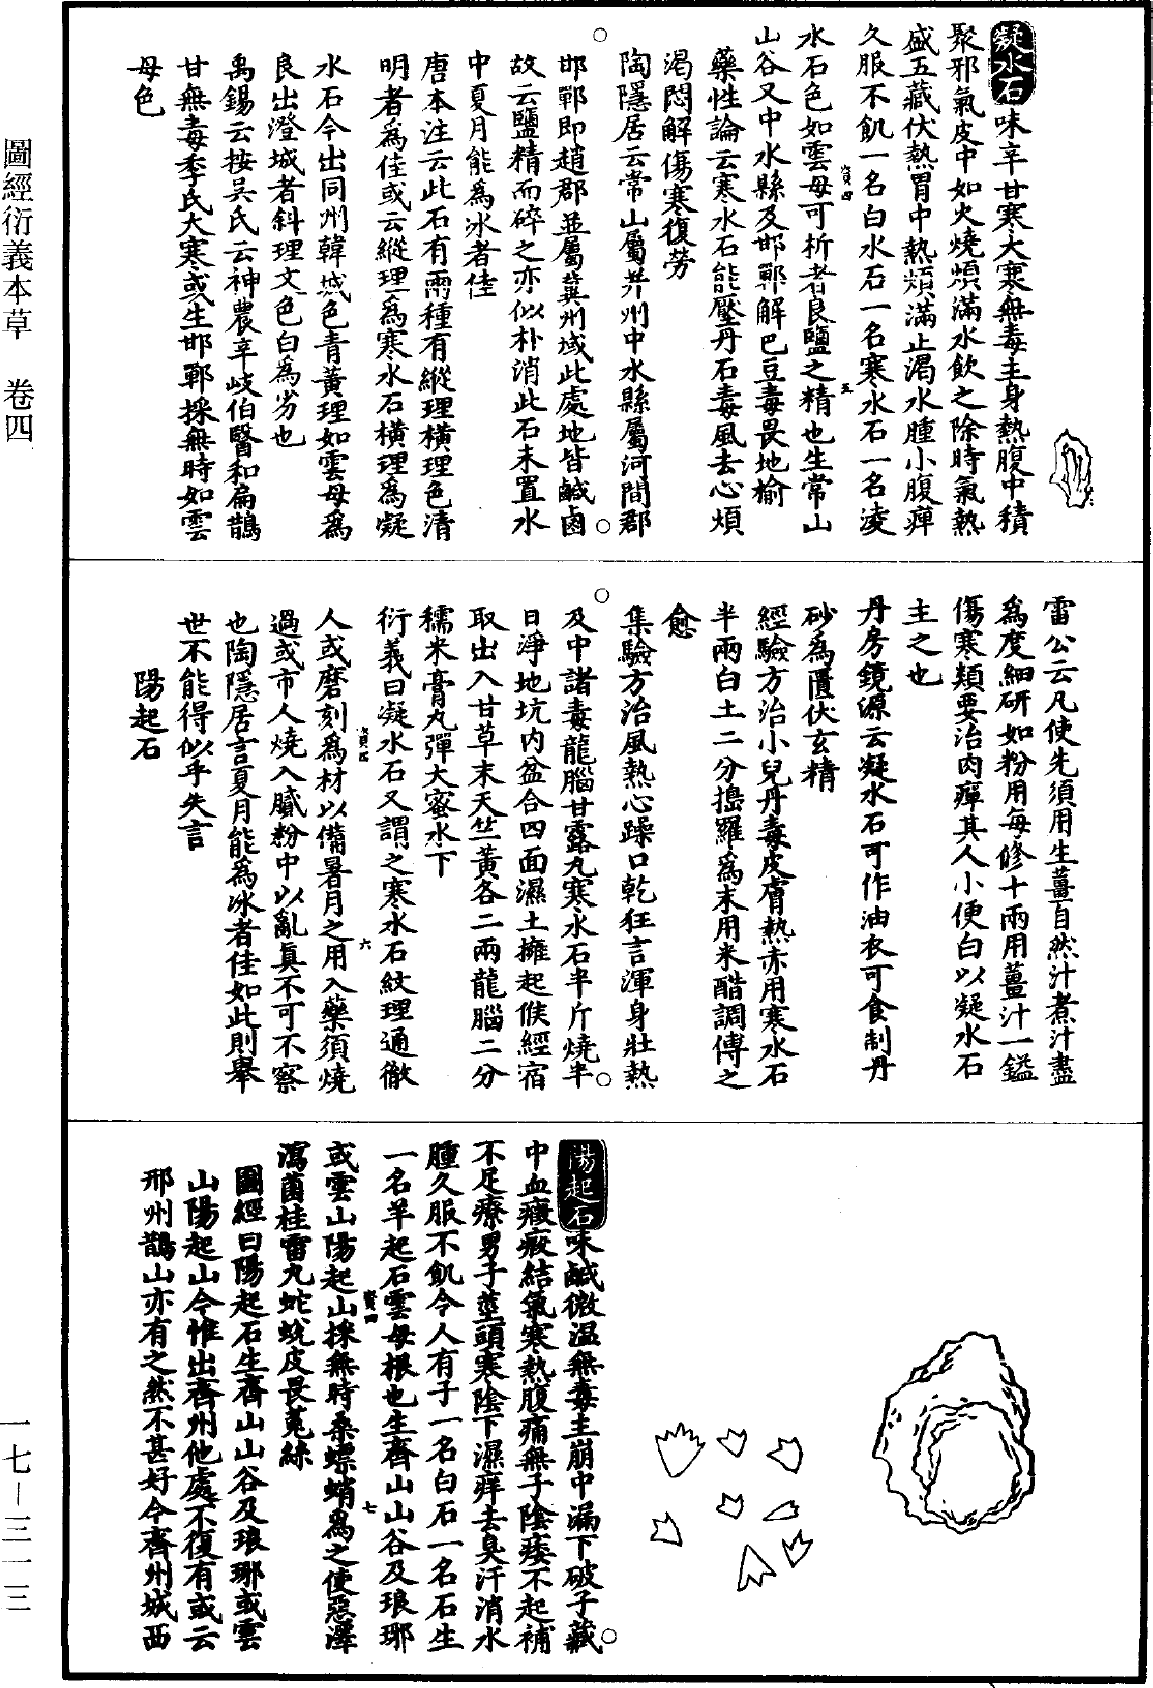 圖經衍義本草　卷四
凝水石味辛甘寒大寒無毒主身熱腹中積
聚邪氣皮中如火燒煩滿水飲之除時氣熱
盛五藏伏熱胃中熱煩滿止渴水腫小腹痹
久服不飢一名白水石一名寒水石一名凌
水石色如雲母可析者良鹽之精也生常山
資四
五
山谷又中水縣及邯鄲解巴豆毒畏地榆
藥性論云寒水石能壓丹石毒風去心煩
渴悶解傷寒復勞
陶隱居云常山屬并州中水縣屬河間郡
邯鄲即趙郡並屬冀州域此處地皆鹹鹵
故云鹽精而碎之亦似朴消此石末置水
中夏月能為冰者佳
唐本注云此石有兩種有縱理橫理色清
明者為佳或云縱理為寒水石橫理為凝
水石今出同州韓城色青黃理如雲母為
良出澄城者斜理文色白為劣也
禹錫云按吳氏云神農辛岐伯醫和扁鵲
甘無毒季氏大寒或生邯鄲採無時如雲
母色
雷公云凡使先須用生薑自然汁煮汁盡
為度細研如粉用每修十兩用薑汁一鎰
傷寒類要治肉癉其人小便白以凝水石
主之也
丹房鏡源云凝水石可作油衣可食制丹
砂為匱伏玄精
經驗方治小兒丹毒皮膚熱赤用寒水石
半兩白土二分搗羅為末用米醋調傅之
愈
集驗方治風熱心躁口乾狂言渾身壯熱
及中諸毒龍腦甘露丸寒水石半斤燒半
日淨地坑內盆合四面濕土擁起候經宿
取出入甘草末天竺黃各二兩龍腦二分
糯米膏丸彈大蜜水下
衍義曰凝水石又謂之寒水石紋理通徹
資四
六
人或磨刻為材以備暑月之用入藥須燒
過或市人燒入膩粉中以亂真不可不察
也陶隱居言夏月能為冰者佳如此則舉
世不能得似乎失言
陽起石
陽起石味鹹微溫無毒主崩中漏下破子藏
中血癥瘕結氣寒熱腹痛無子陰痿不起補
不足療男子莖頭寒陰下濕痒去臭汗消水
腫久服不飢令人有子一名白石一名石生
一名羊起石雲母根也生齊山山谷及琅琊
資四
七
或雲山陽起山採無時桑螵蛸為之使惡澤
瀉菌桂雷丸蛇蛻皮畏菟絲
圖經曰陽起石生齊山山谷及琅琊或雲
山陽起山今惟出齊州他處不復有或云
邢州鵲山亦有之然不甚好今齊州城西
一七—三一三